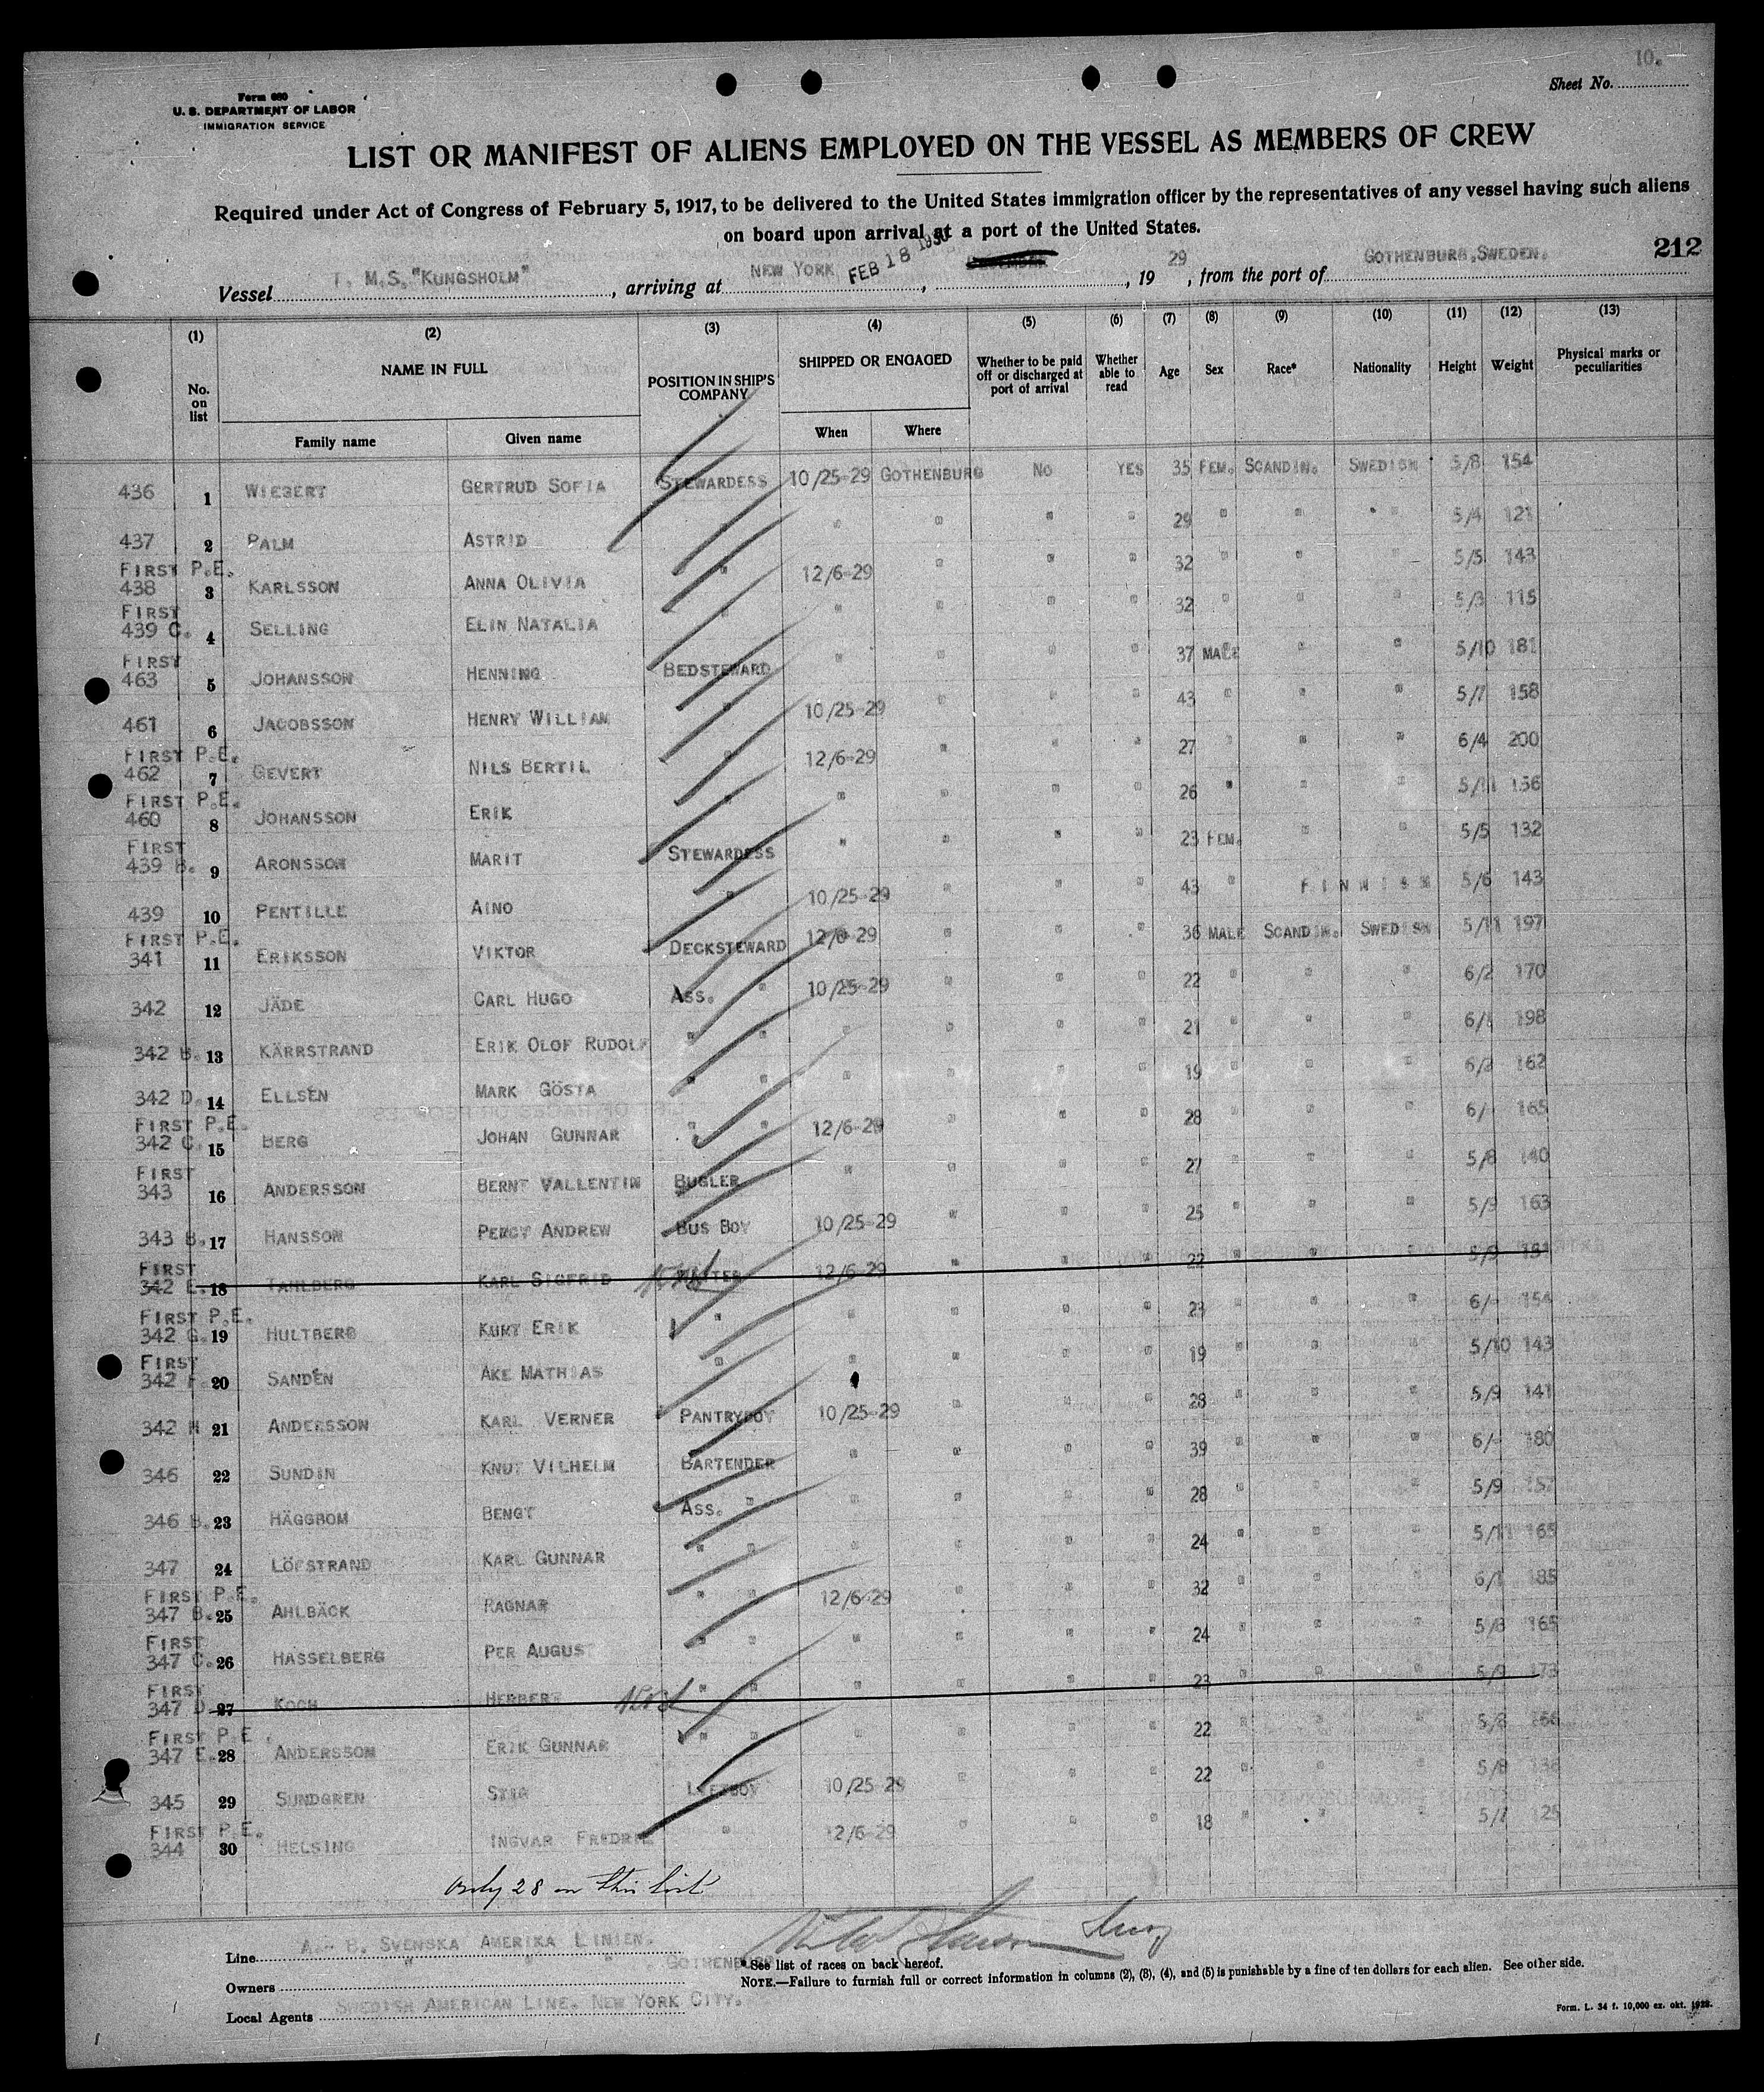 10.
Sheet No.
Form 680
U. S. DEPARTMENT OF LABOR
IMMIGRATION SERVICE
LIST OR MANIFEST OF ALIENS EMPLOYED ON THE VESSEL AS MEMBERS OF CREW
Required under Act of Congress of February 5, 1917, to be delivered to the United States immigration officer by the representatives of any vessel having such aliens
on board upon arrival at a port of the United States.
212
Vessel T. M.S. "KUNGSHOLM", arriving at NEW YORK FEB 18 1930, 1929, from the port of GOTHENBURG, SWEDEN.
(1) (2) (3) (4) (5) (6) (7) (8) (9) (10) (11) (12) (13)
No. on list NAME IN FULL POSITION IN SHIP'S COMPANY SHIPPED OR ENGAGED Whether to be paid off or discharged at port of arrival Whether able to read Age Sex Race* Nationality Height Weight Physical marks or peculiarities
Family name Given name When Where
436 1 WIEBERT GERTRUD SOFIA STEWARDESS 10/25-29 GOTHENBURG NO YES 35 FEM. SCANDIN. SWEDISH 5/8 154
437 2 PALM ASTRID " " " " " 29 " " " 5/4 121
FIRST P.E.
438 3 KARLSSON ANNA OLIVIA " 12/6-29 " " " 32 " " " 5/5 143
FIRST
439 C. 4 SELLING ELIN NATALIA " " " " 32 " " " 5/3 115
FIRST
463 5 JOHANSSON HENNING BEDSTEWARD " " " " 37 MALE " " 5/10 181
461 6 JACOBSSON HENRY WILLIAM " 10/25-29 " " 43 " " " 5/7 158
FIRST P.E.
462 7 GEVERT NILS BERTIL " 12/6-29 " " " 27 " " " 6/4 200
FIRST P.E.
460 8 JOHANSSON ERIK " " " " 26 " " " 5/11 156
FIRST
439 B. 9 ARONSSON MARIT STEWARDESS " " " " 23 FEM. " " 5/5 132
439 10 PENTILLE AINO " 10/25-29 " " " 43 " FINNISH 5/6 143
FIRST P.E.
341 11 ERIKSSON VIKTOR DECKSTEWARD 12/6-29 " " " 36 MALE SCANDIN. SWEDISH 5/11 197
342 12 JÄDE CARL HUGO ASS. " 10/25-29 " " " 22 " " " 6/2 170
342 B. 13 KÄRRSTRAND ERIK OLOF RUDOLF " " " " " 21 " " " 6/1 198
342 D. 14 ELLSEN MARK GÖSTA " " " " " " 19 " " " 6/2 162
FIRST P.E.
342 C. 15 BERG JOHAN GUNNAR " " 12/6-29 " " " 28 " " " 6/- 165
FIRST
343 16 ANDERSSON BERNT VALLENTIN BUGLER " " " " 27 " " " 5/8 140
343 B. 17 HANSSON PERCY ANDREW BUS BOY 10/25-29 " " " 25 " " " 5/9 163
FIRST
342 E. 18 TAHLBERG KARL SIGFRID WAITER 12/6-29 " " " 22 " " " 5/9 151
FIRST P.E.
342 G. 19 HULTBERG KURT ERIK " " " " " 23 " " " 6/- 154
FIRST
342 F. 20 SANDÉN AKE MATHIAS " " " " " 19 " " " 5/10 143
342 H 21 ANDERSSON KARL VERNER PANTRYBOY 10/25-29 " " " 28 " " " 5/9 141
346 22 SUNDIN KNUT VILHELM BARTENDER " " " " 39 " " " 6/- 180
346 B. 23 HÄGGBOM BENGT ASS. " " " " " 28 " " " 5/9 157
347 24 LÖFSTRAND KARL GUNNAR " " " " " " 24 " " " 5/11 165
FIRST P.E.
347 B. 25 AHLBÄCK RAGNAR " " 12/6-29 " " 32 " " " 6/1 185
FIRST
347 C. 26 HASSELBERG PER AUGUST " " " " " " 24 " " " 5/8 165
FIRST
347 D. 27 KOCH HERBERT " " " " " " 23 " " " 5/9 173
FIRST P.E.
347 E. 28 ANDERSSON ERIK GUNNAR " " " " " " 22 " " " 5/8 166
345 29 SUNDGREN STIG LIFTBOY 10/25-29 " " " 22 " " " 5/8 136
FIRST P.E.
344 30 HELSING INGVAR FREDRIK " 12/6-29 " " " 18 " " " 5/7 125
only 28 on this list
Line A.- B. SVENSKA AMERIKA LINIEN.
Owners " " " , GOTHENBURG
Local Agents SWEDISH AMERICAN LINE, NEW YORK CITY.
*See list of races on back hereof.
NOTE.—Failure to furnish full or correct information in columns (2), (3), (4), and (5) is punishable by a fine of ten dollars for each alien. See other side.
Form. L. 34 f. 10,000 ex. okt. 1928.